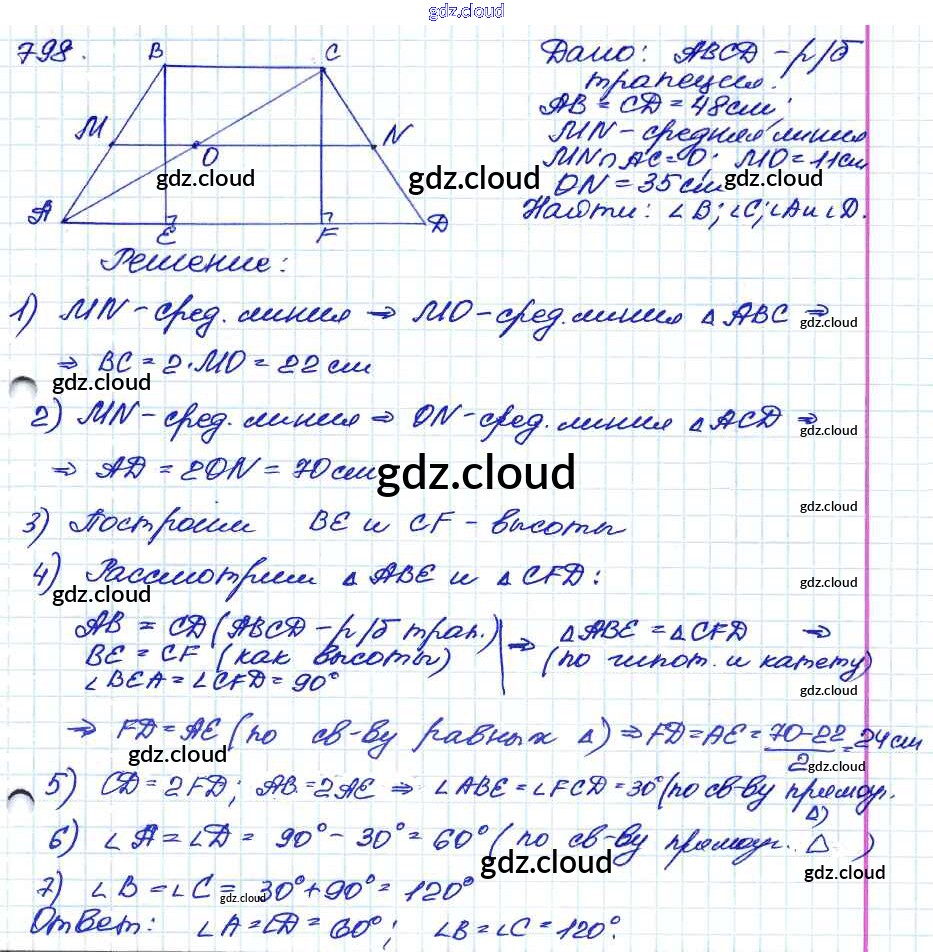 gdz.cloud
798.
B C
M N
O
A E F D
Дано: ABCD - р/б
трапеция.
AB = CD = 48 см;
MN - средняя линия
MN ∩ AC = O; MO = 11 см
ON = 35 см
Найти: ∠B; ∠C; ∠A и ∠D.
gdz.cloud gdz.cloud gdz.cloud
Решение:
1) MN - сред. линия ⇒ MO - сред. линия △ ABC ⇒
gdz.cloud
⇒ BC = 2·MO = 22 см
gdz.cloud
2) MN - сред. линия ⇒ ON - сред. линия △ ACD ⇒
gdz.cloud
⇒ AD = 2ON = 70 см
gdz.cloud
gdz.cloud
3) Построим BE и CF - высоты
4) Рассмотрим △ ABE и △ CFD:
gdz.cloud gdz.cloud
AB = CD (ABCD - р/б трап.) | ⇒ △ABE = △CFD ⇒
BE = CF (как высоты) (по гипот. и катету)
∠BEA = ∠CFD = 90°
gdz.cloud
⇒ FD = AE (по св-ву равных △) ⇒ FD = AE = (70-22)/2 = 24 см
gdz.cloud gdz.cloud
5) CD = 2FD; AB = 2AE ⇒ ∠ABE = ∠FCD = 30° (по св-ву прямоуг.
△)
6) ∠A = ∠D = 90° - 30° = 60° (по св-ву прямоуг. △ )
gdz.cloud gdz.cloud
7) ∠B = ∠C = 30° + 90° = 120°
gdz.cloud
Ответ: ∠A = ∠D = 60°; ∠B = ∠C = 120°.